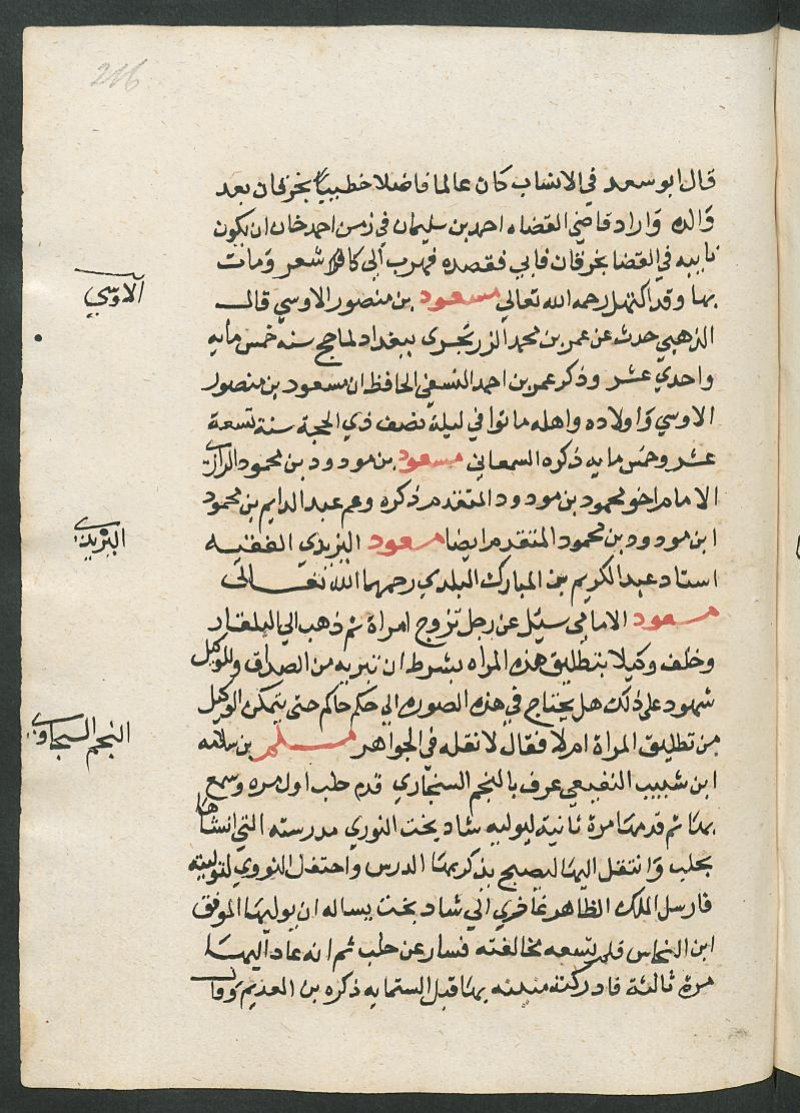 216
قال ابو سعد في الانساب كان عالما فاضلا خطيبا بخرقان بعد
والده واراد قاضي القضاه احمد بن سليمان في زمن احمد خان ان يكون
نايبه في القضا بخرقان فابي فقصده فهرب الى شعر ومات
بها وقد اكتهل رحمه الله تعالى مسعود بن منصور الاوسي قال
الاوسي
الذهبي حدث عن عمر بن محمد الزرنجرى ببغداد لما حج سنه خمس مايه
واحدي عشر وذكر عمر بن احمد النسفي الحافظ ان مسعود بن منصور
الاوسي واولاده واهله ماتوا في ليلة نصف ذي الحجة سنة تسعة
عشر وخمس مايه ذكره السمعاني مسعود بن مودود بن محمود الرازي
الامام اخو محمود بن مودود المتقدم ذكره وعم عبد الدايم بن محمود
ابن مودود بن محمود المتقدم ايضا مسعود اليزيدي الفقيه
اليزيدي
استاد عبد الكريم بن المبارك البلدي رحمهما الله تعالى
مسعود الامامي سئل عن رجل تزوج امراة ثم ذهب الي البلغار
وخلف وكيلا بتطليق هذه المراه بشرط ان تبريه من الصداق وللوكيل
شهود على ذلك هل يحتاج في هذه الصوره الي حكم حاكم حتى يتمكن الوكيل
من تطليق المراة ام لا فقال لا نقله في الجواهر مسلم بن سلامه
النجم السنجاري
ابن شبيب النفيعي عرف بالنجم السنجاري قدم حلب اول مره وسمع
بها ثم قدمها مرة ثانية ليوليه شاد بخت النوري مدرسته التي انشاها
بحلب وانتقل اليها ليصبح بذكر بها الدرس واحتفل النووي لتوليته
فارسل الملك الظاهر غاخري الي شاد بخت يساله ان يوليها الموفق
ابن النحاس فلم تسعه مخالفته فسار عن حلب ثم انه عاد اليها
مرة ثالثة فادركته منيته بها قبل الستمايه ذكره بن العديم وقال